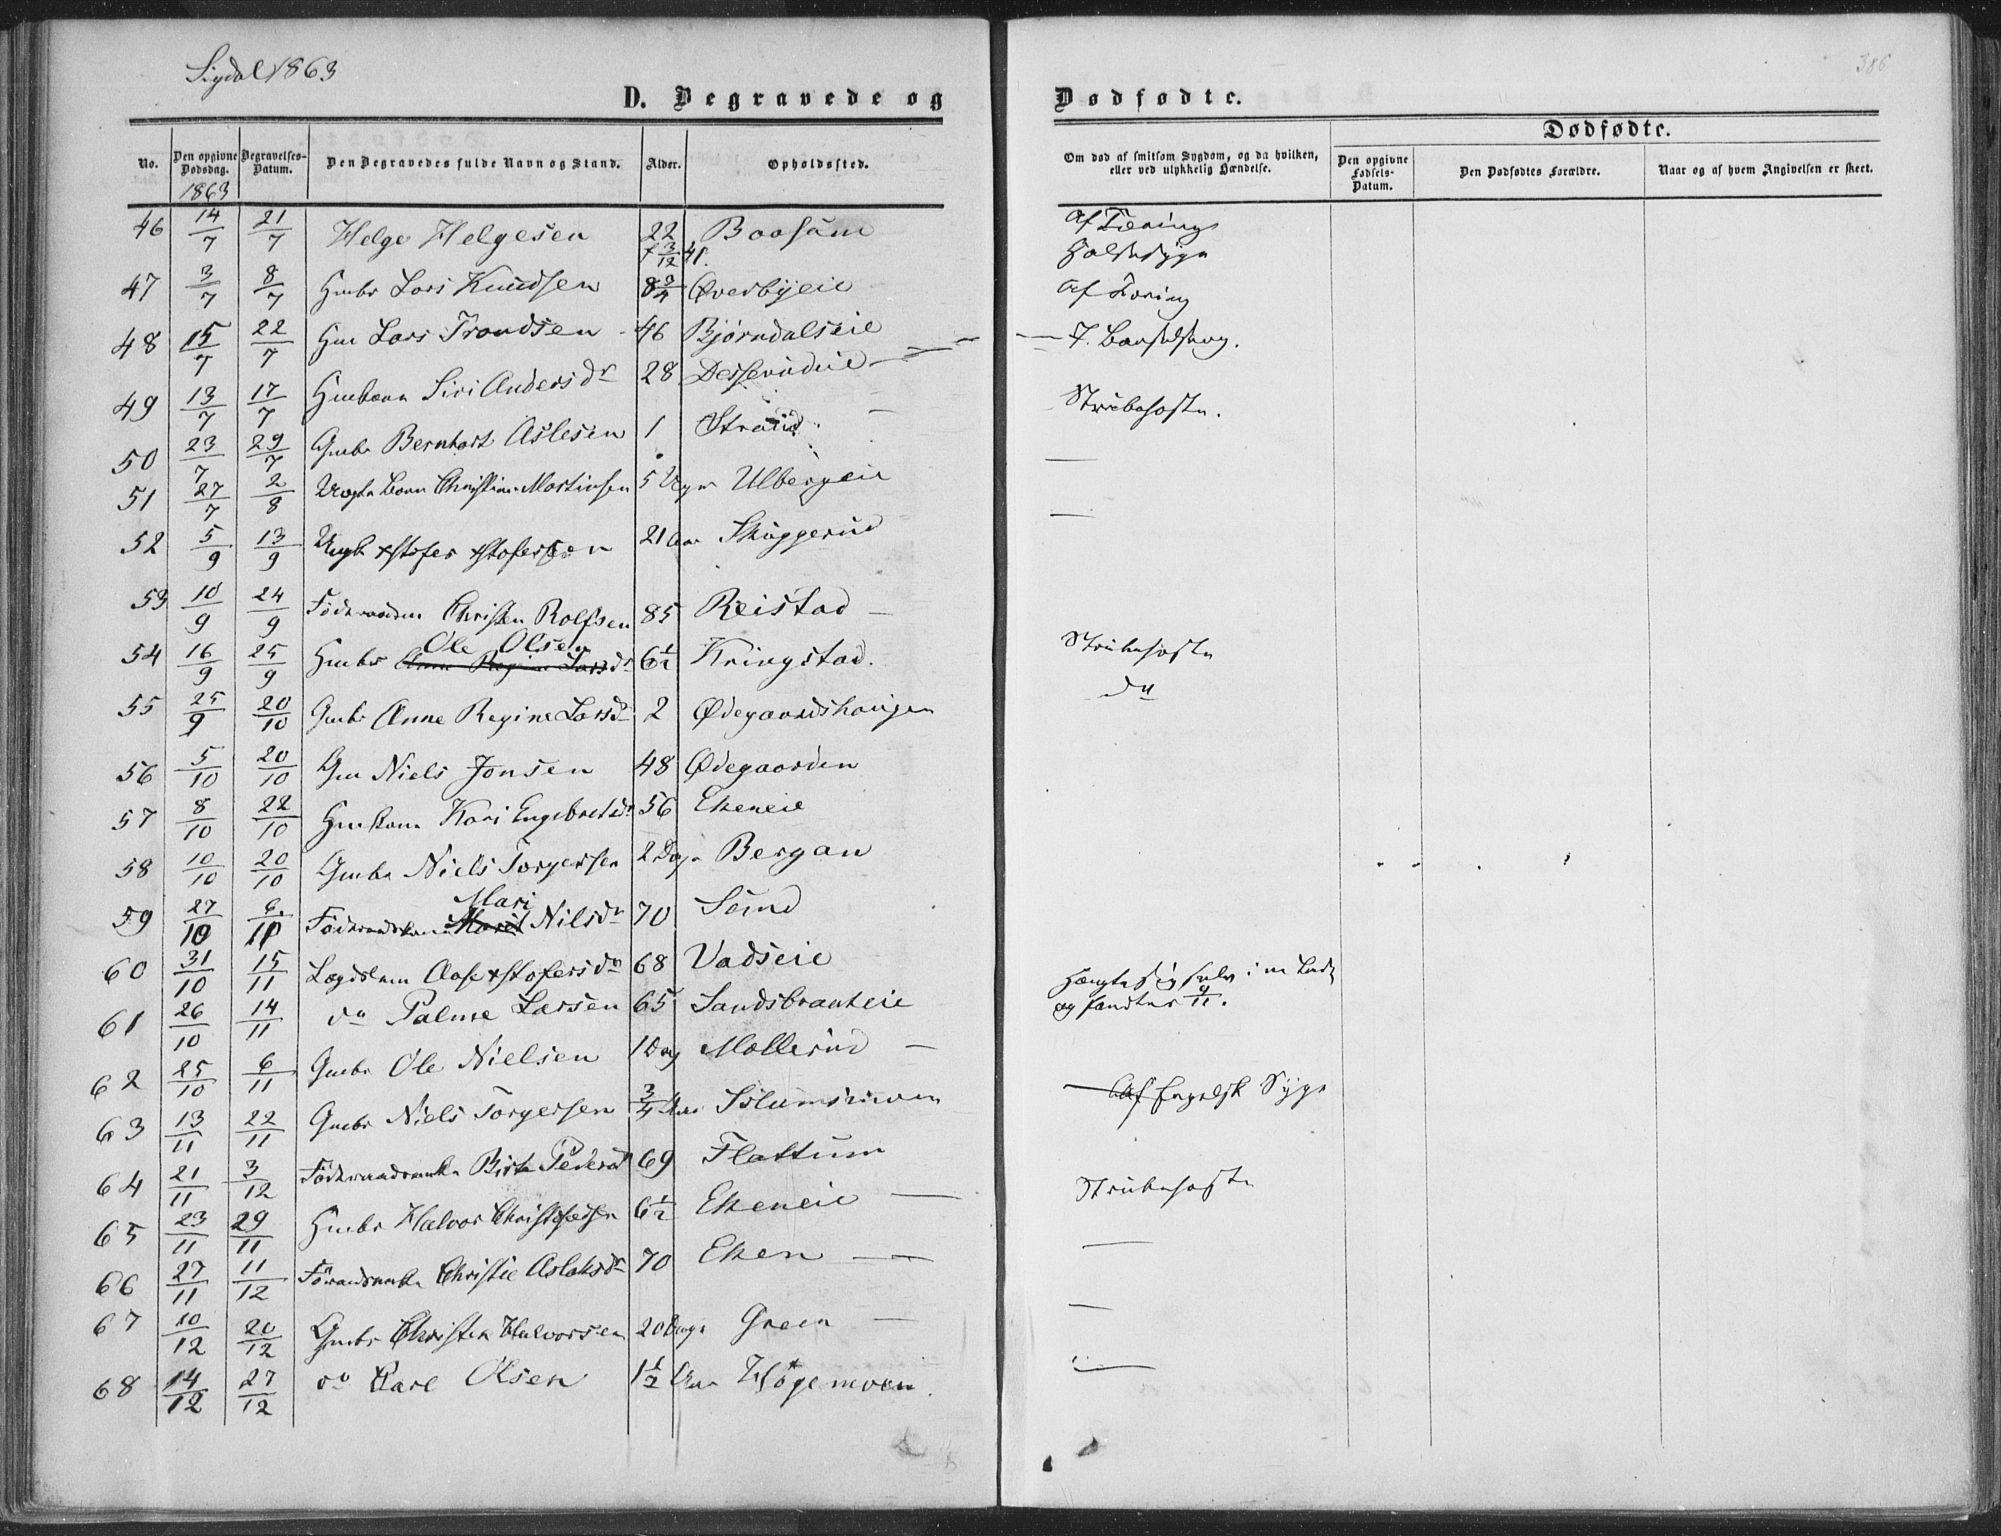 Sigdal 1863
386
D. Begravede og
Dødfødte.
No. Den opgivne Dødsdag. Begravelses-Datum. Den Begravedes fulde Navn og Stand. Alder. Opholdssted.
Om død af smitsom Sygdom, og da hvilken, eller ved ulykkelig Hændelse. Den opgivne Fødsels-Datum. Den Dødfødtes Forældre. Naar og af hvem Angivelsen er skeet.
Dødfødte.
1863
46 14/7 21/7 Helge Helgesen 22
47 3/7 8/7 Hmbr Lars Knudsen 8 3/4 Øverbyeie
48 15/7 22/7 Hm Lars Trondsen 46 Bjørndalseie
49 13/7 17/7 Siri Andersdr 28
50 23/7 29/7 Gmbr Bernhart Aslesen 1
51 27/7 2/8 Uægte Barn Christian Martinsen 5 Uger Ulbergeie
52 5/9 13/9 Ungk xstofer xstofersen 21 Aar Skuggerud
53 10/9 24/9 Christen Rolfsen 85 Reistad
54 16/9 25/9 Hmbr Ole Olsen 6 1/2 Kringstad.
55 25/9 20/10 Gmbr Anne Regine Larsdr 2 Ødegaardshaugen
56 5/10 20/10 Gm Niels Jonsen 48 Ødegaarden
57 8/10 22/10 Hmkone Kari Engebretsdr 56 Ekeneie
58 10/10 20/10 Gmbr Niels Torgersen 2 Dage Bergan
59 27/10 6/11 Mari Nilsdr 70
60 31/10 15/11 Lægdslem Aase xstofersdr 68 Vadseie
61 26/10 14/11 do Palme Larsen 65 Sandsbraateie
62 25/10 6/11 Gmbr Ole Nielsen 1 Dag Møllerud
63 13/11 22/11 Gmbr Niels Torgersen 3/4 Aar
64 21/11 3/12 Pedersdr 69 Flattum
65 23/11 29/11 Hmbr Halvor Christofersen 6 1/2 Ekeneie
66 27/11 11/12 Christie Aslaksdr 70 Eken
67 10/12 20/12 Gmbr Christen Halvorsen 20 Dage Green
68 14/12 27/12 do Carl Olsen 1 1/2 Aar
Af Tæring
Halssyge
Af Tæring
I Barselseng.
Strubehoste.
Strubehoste
do
Hængte sig selv i en Lade
og fandtes 9/11.
Af Engelsk Syge
Strubehoste